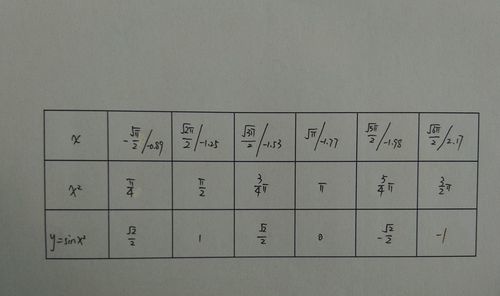 x -√π/2/-0.89 √2π/2/-1.25 √3π/2/-1.53 √π/-1.77 √5π/2/-1.98 √6π/2/2.17
x² π/4 π/2 3/4π π 5/4π 3/2π
y=sinx² √2/2 1 √2/2 0 -√2/2 -1